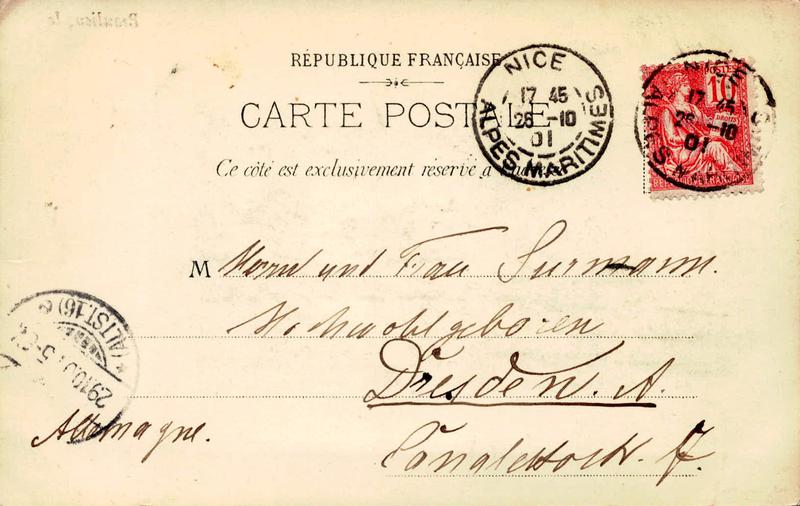 RÉPUBLIQUE FRANÇAISE
CARTE POSTALE
Ce côté est exclusivement réservé à
NICE
17 45
26 -10
01
ALPES MARITIMES
POSTES
10
NICE
17 45
26 -10
01
M Herrn und Frau Surmann.
Hochwohlgeboren
Dresden. A.
Allemagne.
29 10 01 5-6
(ALTST.16) e